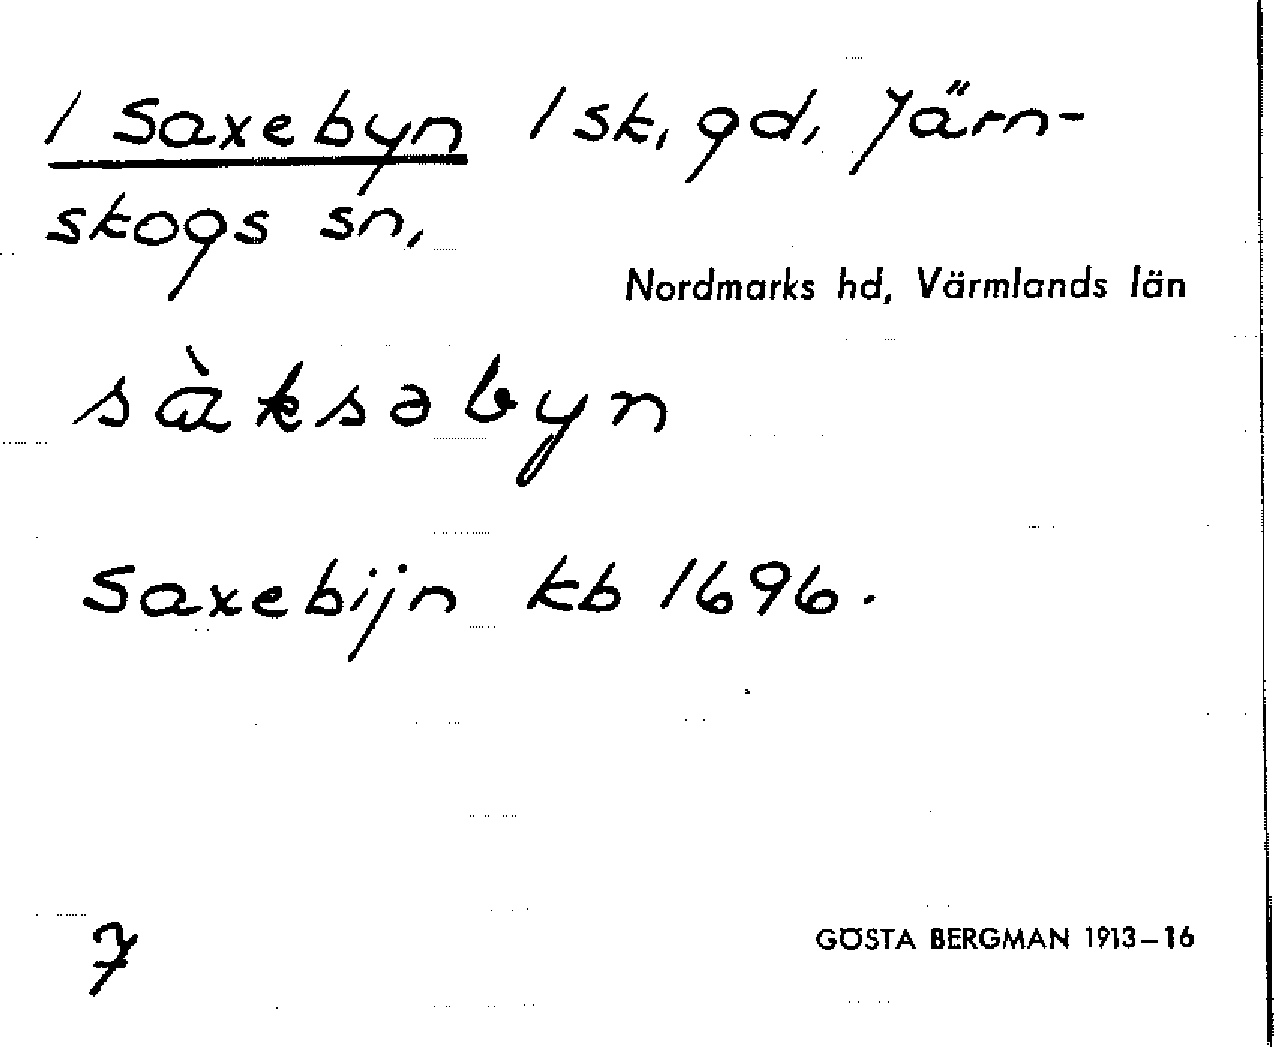 1 Saxebyn 1 sk, gd, Järn-
skogs sn,
Nordmarks hd, Värmlands län
sàksəbyn
Saxebijn kb 1696.
7
GÖSTA BERGMAN 1913–16